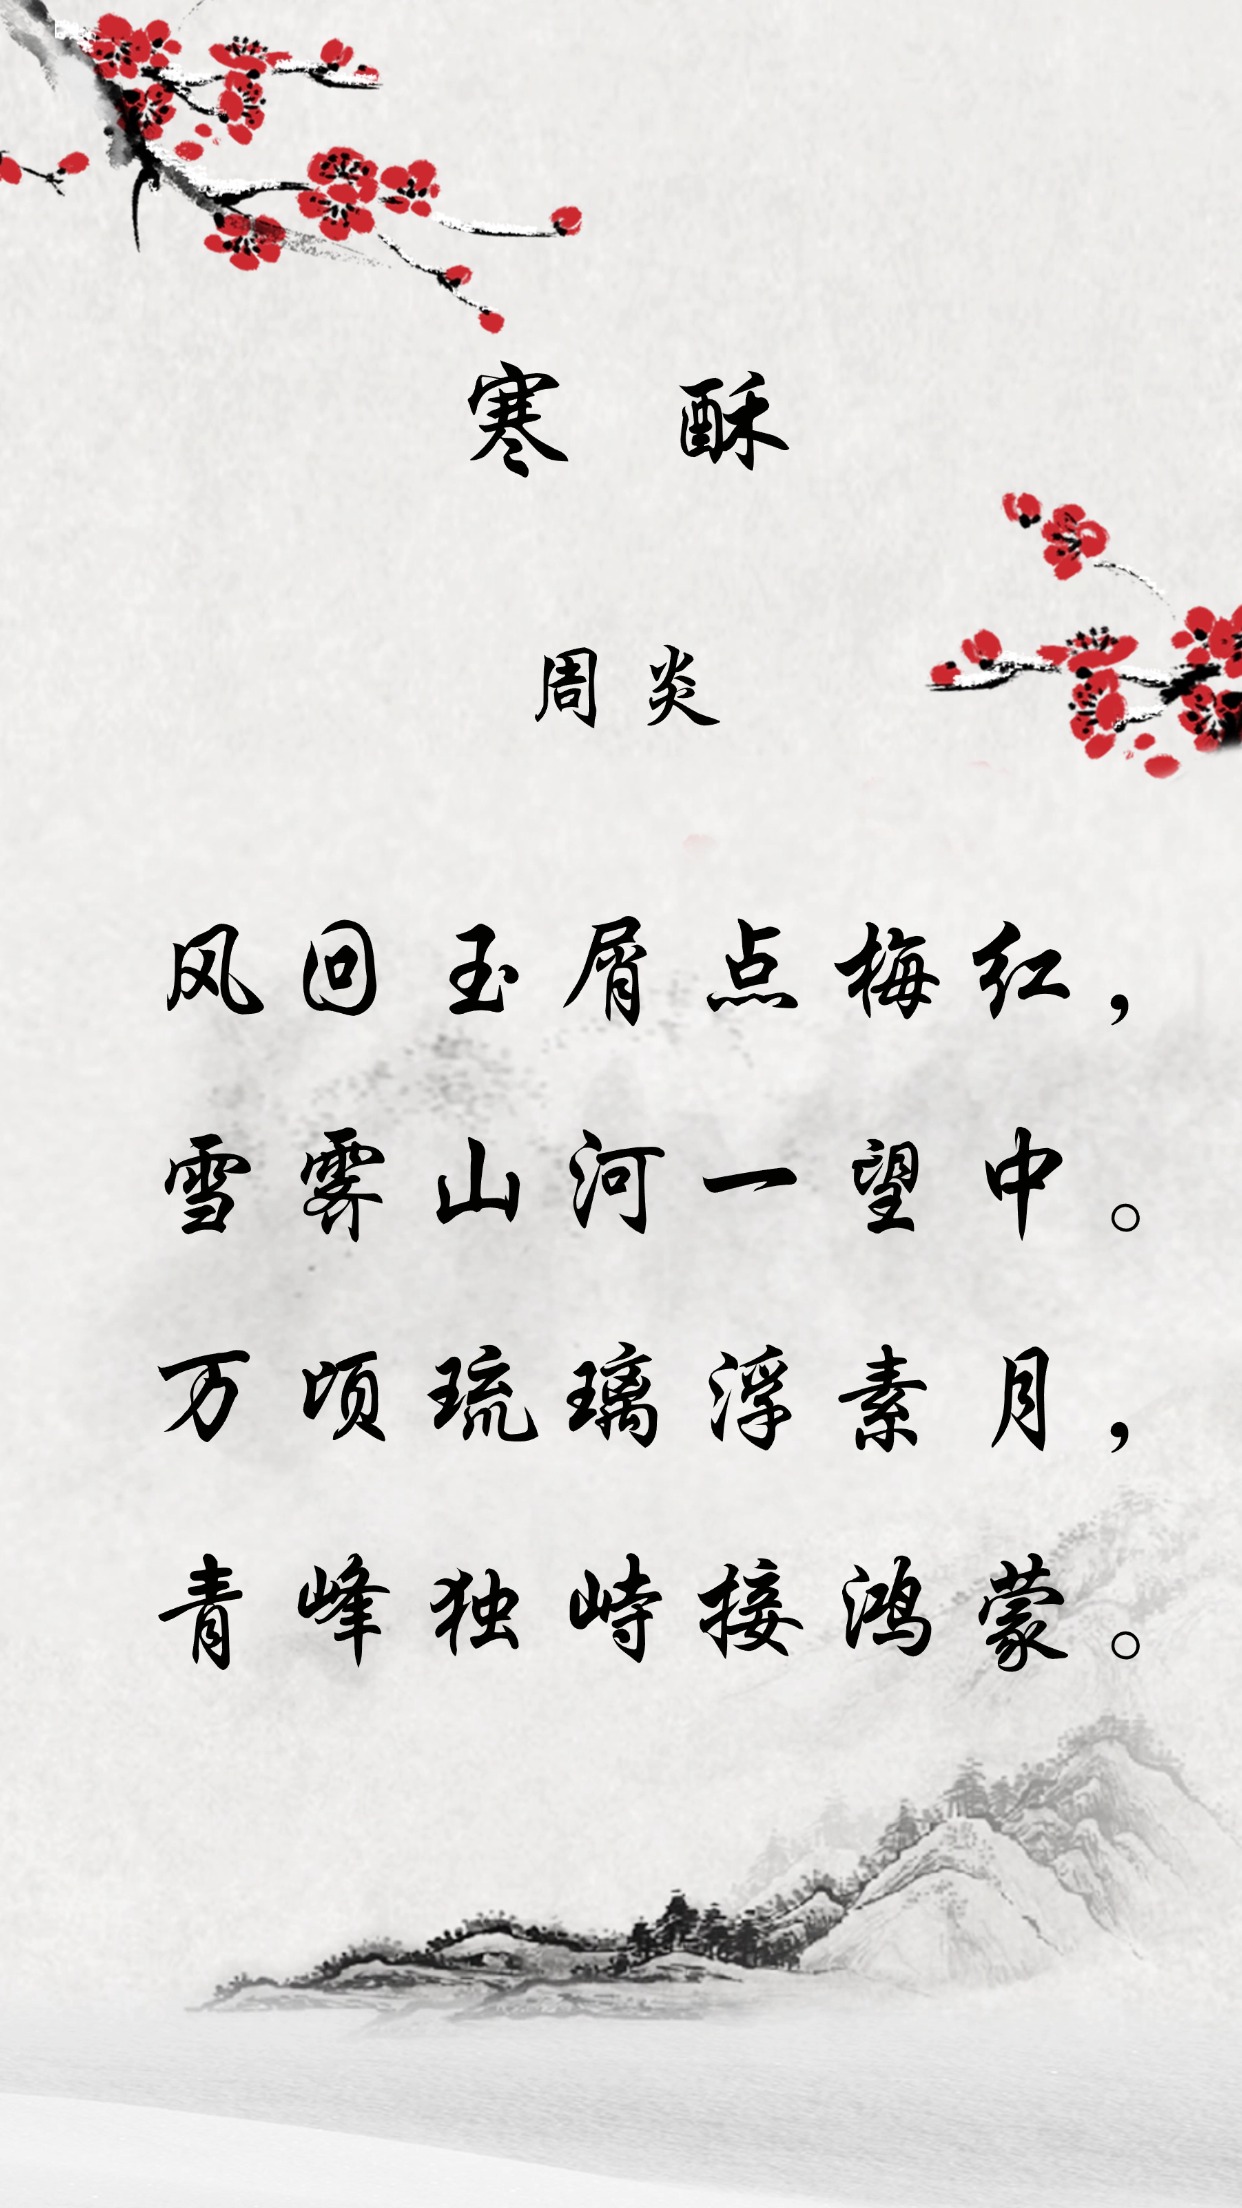 寒酥
周炎
风回玉屑点梅红，
雪霁山河一望中。
万顷琉璃浮素月，
青峰独峙接鸿蒙。